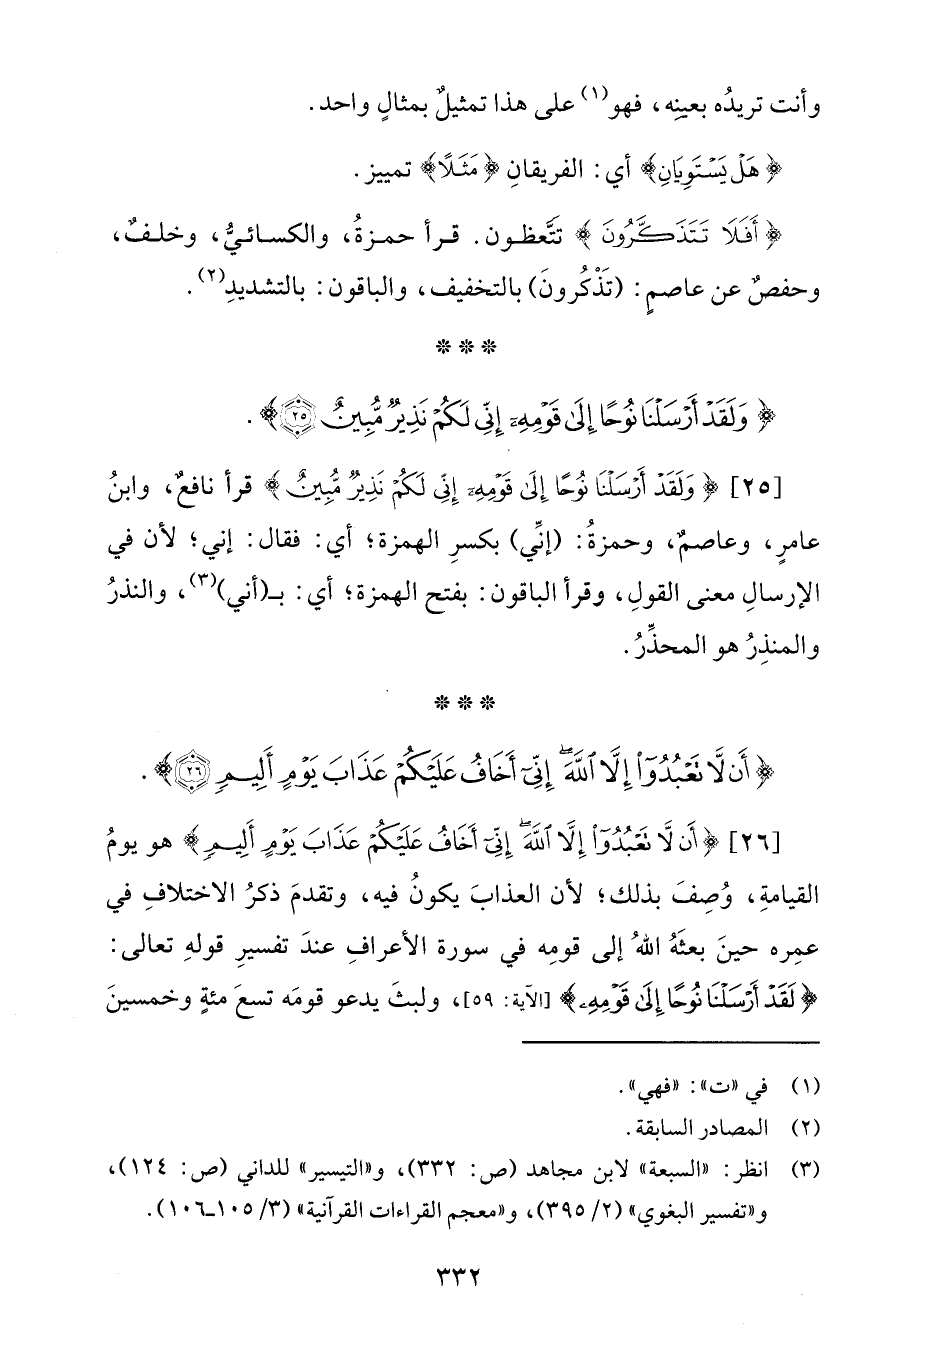 وأنت تريدُه بعينِه، فهو(١) على هذا تمثيلٌ بمثالٍ واحد.
﴿هَلْ يَسْتَوِيَانِ﴾ أي: الفريقانِ ﴿مَثَلًا﴾ تمييز.
﴿أَفَلَا تَتَذَكَّرُونَ﴾ تتَّعظون. قرأ حمزةُ، والكسائيُّ، وخلفٌ،
وحفصٌ عن عاصمٍ: (تَذْكُرونَ) بالتخفيف، والباقون: بالتشديدِ(٢).
* * *
﴿وَلَقَدْ أَرْسَلْنَا نُوحًا إِلَىٰ قَوْمِهِۦٓ إِنِّي لَكُمْ نَذِيرٌ مُّبِينٌ ٢٥﴾.
[٢٥] ﴿وَلَقَدْ أَرْسَلْنَا نُوحًا إِلَىٰ قَوْمِهِۦٓ إِنِّي لَكُمْ نَذِيرٌ مُّبِينٌ﴾ قرأ نافعٌ، وابنُ
عامرٍ، وعاصمٌ، وحمزةُ: (إنِّي) بكسرِ الهمزة؛ أي: فقال: إني؛ لأن في
الإرسالِ معنى القولِ، وقرأ الباقون: بفتح الهمزة؛ أي: بـ(أني)(٣)، والنذرُ
والمنذِرُ هو المحذِّرُ.
* * *
﴿أَن لَّا نَعْبُدُوٓا۟ إِلَّا ٱللَّهَ ۖ إِنِّيٓ أَخَافُ عَلَيْكُمْ عَذَابَ يَوْمٍ أَلِيمٍ ٢٦﴾.
[٢٦] ﴿أَن لَّا نَعْبُدُوٓا۟ إِلَّا ٱللَّهَ ۖ إِنِّيٓ أَخَافُ عَلَيْكُمْ عَذَابَ يَوْمٍ أَلِيمٍ﴾ هو يومُ
القيامةِ، وُصِفَ بذلك؛ لأن العذابَ يكونُ فيه، وتقدمَ ذكرُ الاختلافِ في
عمرِه حينَ بعثَهُ اللهُ إلى قومِه في سورة الأعرافِ عندَ تفسيرِ قولهِ تعالى:
﴿لَقَدْ أَرْسَلْنَا نُوحًا إِلَىٰ قَوْمِهِۦ﴾ [الآية: ٥٩]، ولبثَ يدعو قومَه تسعَ مئةٍ وخمسينَ
(١) في «ت»: «فهي».
(٢) المصادر السابقة.
(٣) انظر: «السبعة» لابن مجاهد (ص: ٣٣٢)، و«التيسير» للداني (ص: ١٢٤)،
و«تفسير البغوي» (٢/ ٣٩٥)، و«معجم القراءات القرآنية» (٣/ ١٠٥-١٠٦).
٣٣٢